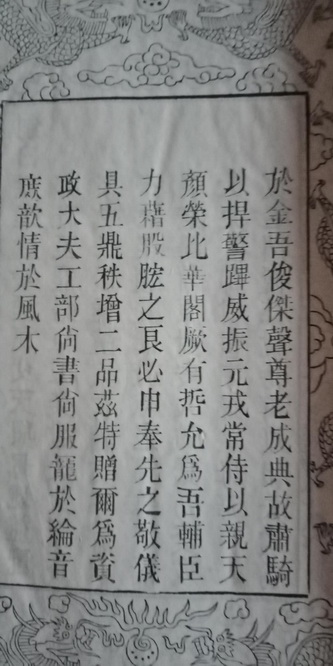 於金吾俊傑聲尊老成典故肅騎
以捍警蹕威振元戎常侍以親天
顏榮比華閣厥有哲允爲吾輔臣
力藉股肱之良必申奉先之敬儀
具五鼎秩增二品茲特贈爾爲資
政大夫工部尙書尙服寵於綸音
庶歆情於風木